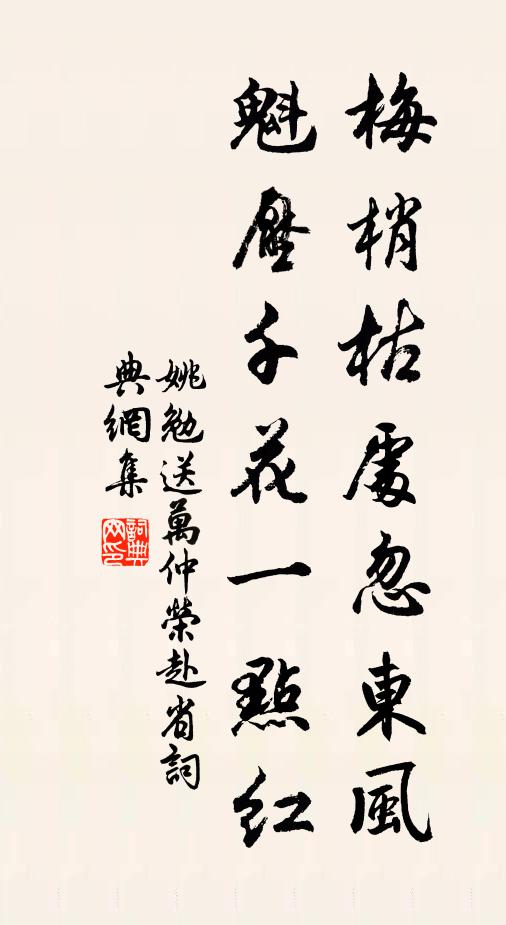 梅梢枯處忽東風
魁壓千花一點紅
姚勉送萬仲榮赴省詞
典網集
詞典網印